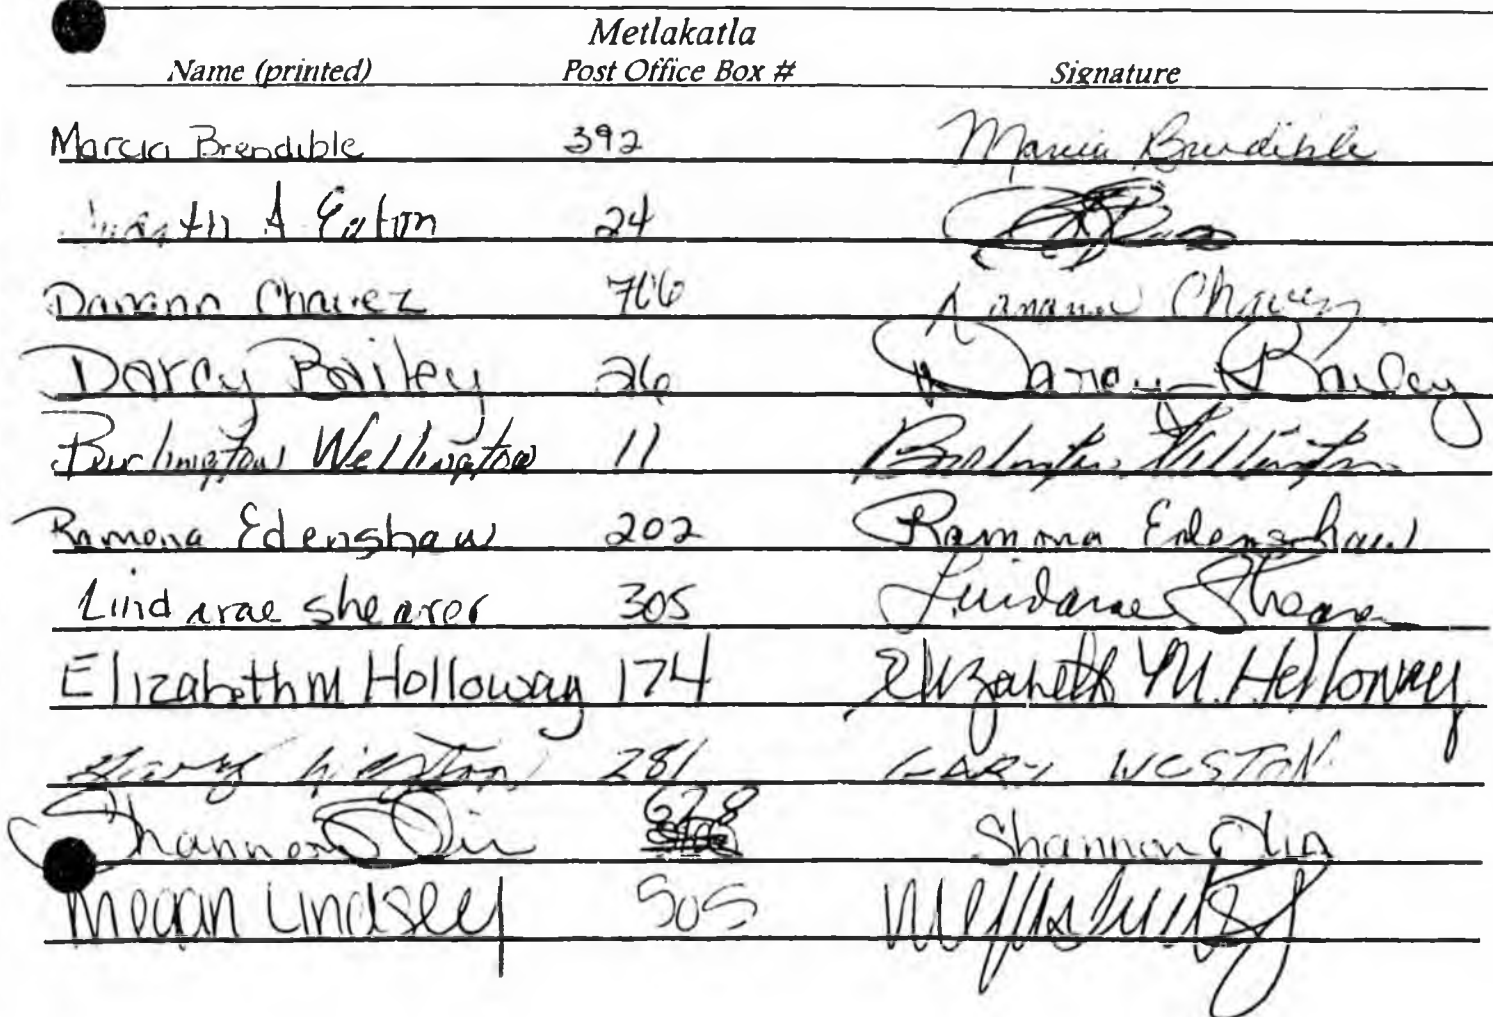 Metlakatla
Name (printed) Post Office Box # Signature
Marcia Brendible 392 Marcia Brendible
A Eaton 24
Chavez 706 Chavez
Darcy Bailey 26 Darcy Bailey
Burlington Wellington 11 Burlington Wellington
Ramona Edenshaw 202 Ramona Edenshaw
Lindarae shearer 305 Lindarae Shearer
Elizabeth M Holloway 174 Elizabeth M. Holloway
Gary Weston 281 GARY WESTON
Shannon 628 Shannon
Megan Lindsey 505